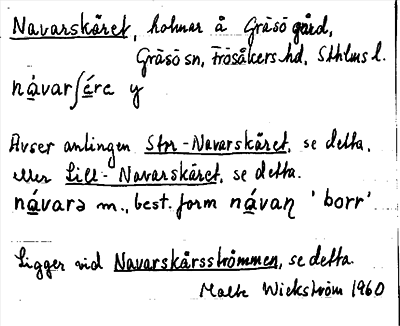 Navarskäret, holmar å Gräsö gård,
Gräsö sn, Frösåkers hd, Sthlms l.
návarʃǽrɛ y
Avser antingen Stor-Navarskäret, se detta,
eller Lill-Navarskäret, se detta.
návarə m., best. form návaɳ 'borr'
Ligger vid Navarskärsströmmen, se detta.
Malte Wickström 1960